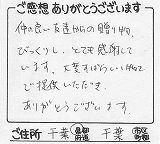 ご感想ありがとうございます
仲の良い友達からの贈り物
びっくりし、とても感謝して
います。大変すばらしい物をご
提供いただき、
ありがとうございます。
ご住所 千葉 都道府県 千葉 市区町村